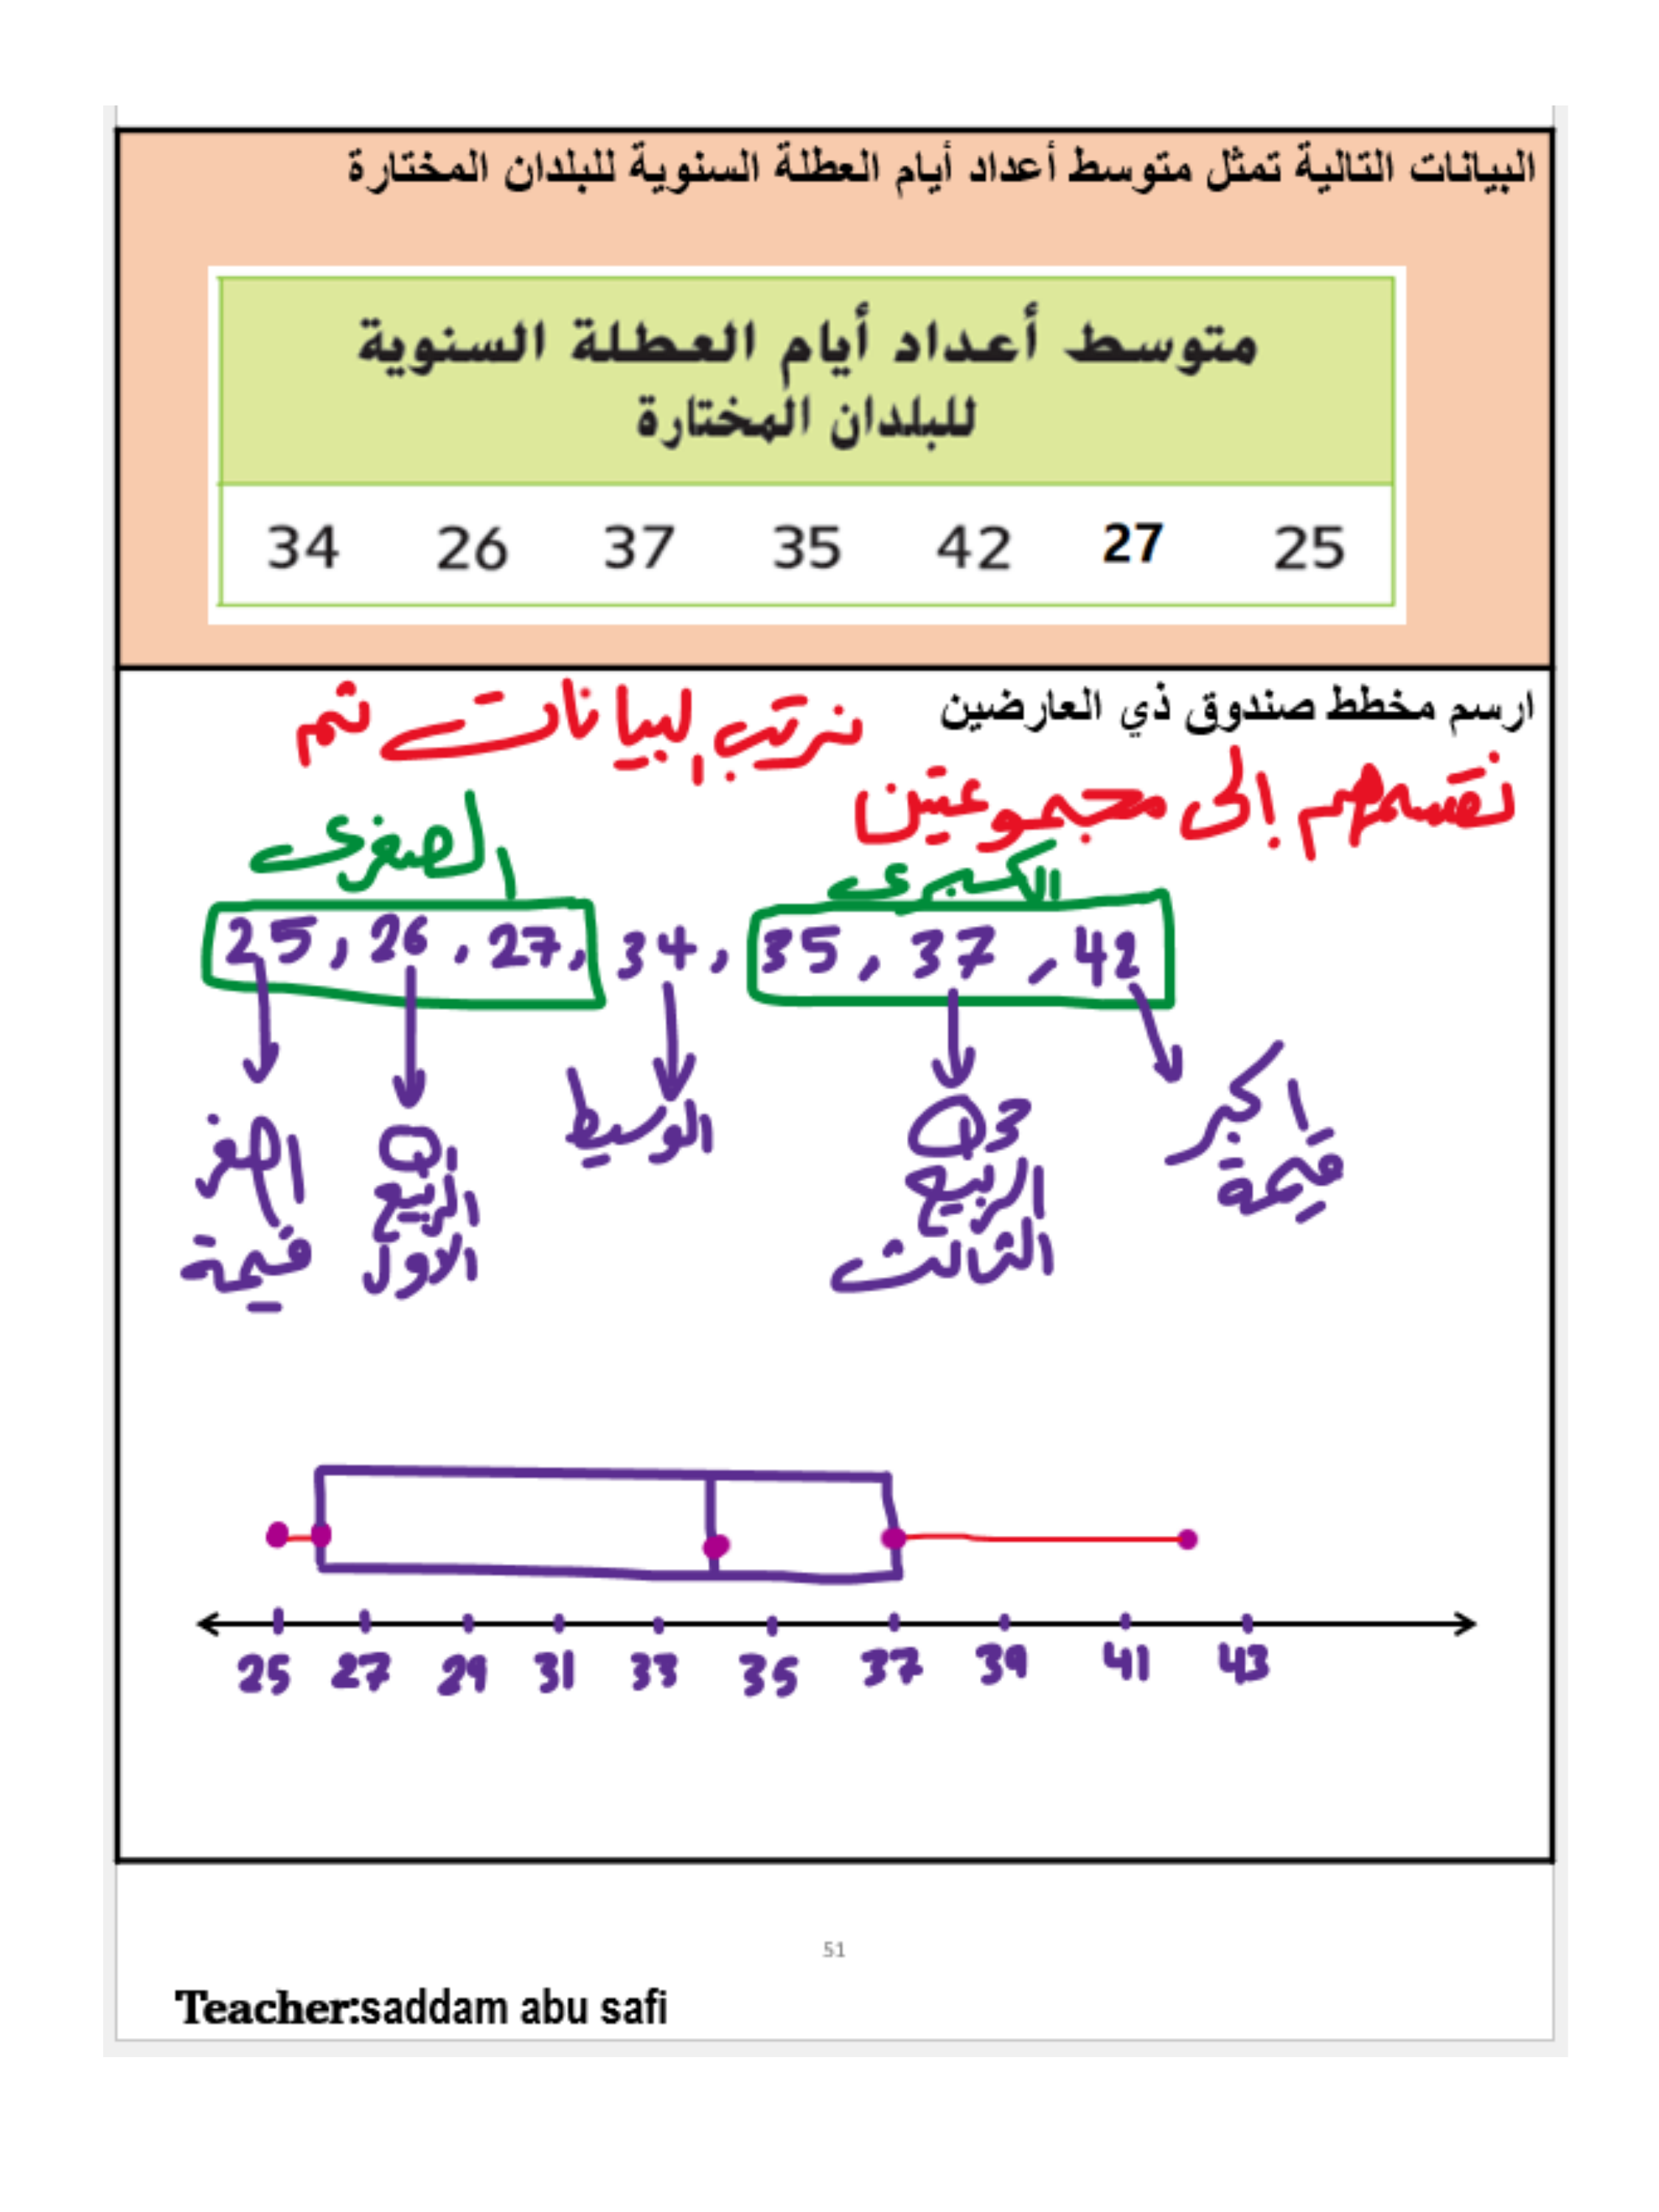 البيانات التالية تمثل متوسط أعداد أيام العطلة السنوية للبلدان المختارة
متوسط أعداد أيام العطلة السنوية
للبلدان المختارة
34 26 37 35 42 27 25
ارسم مخطط صندوق ذي العارضين
نرتب البيانات ثم
نقسمهم إلى مجموعتين
الصغرى
الكبرى
25, 26, 27, 34, 35, 37, 42
اصغر قيمة
Q1 الربيع الاول
الوسيط
Q3 الربيع الثالث
اكبر قيمة
25 27 29 31 33 35 37 39 41 43
51
Teacher:saddam abu safi